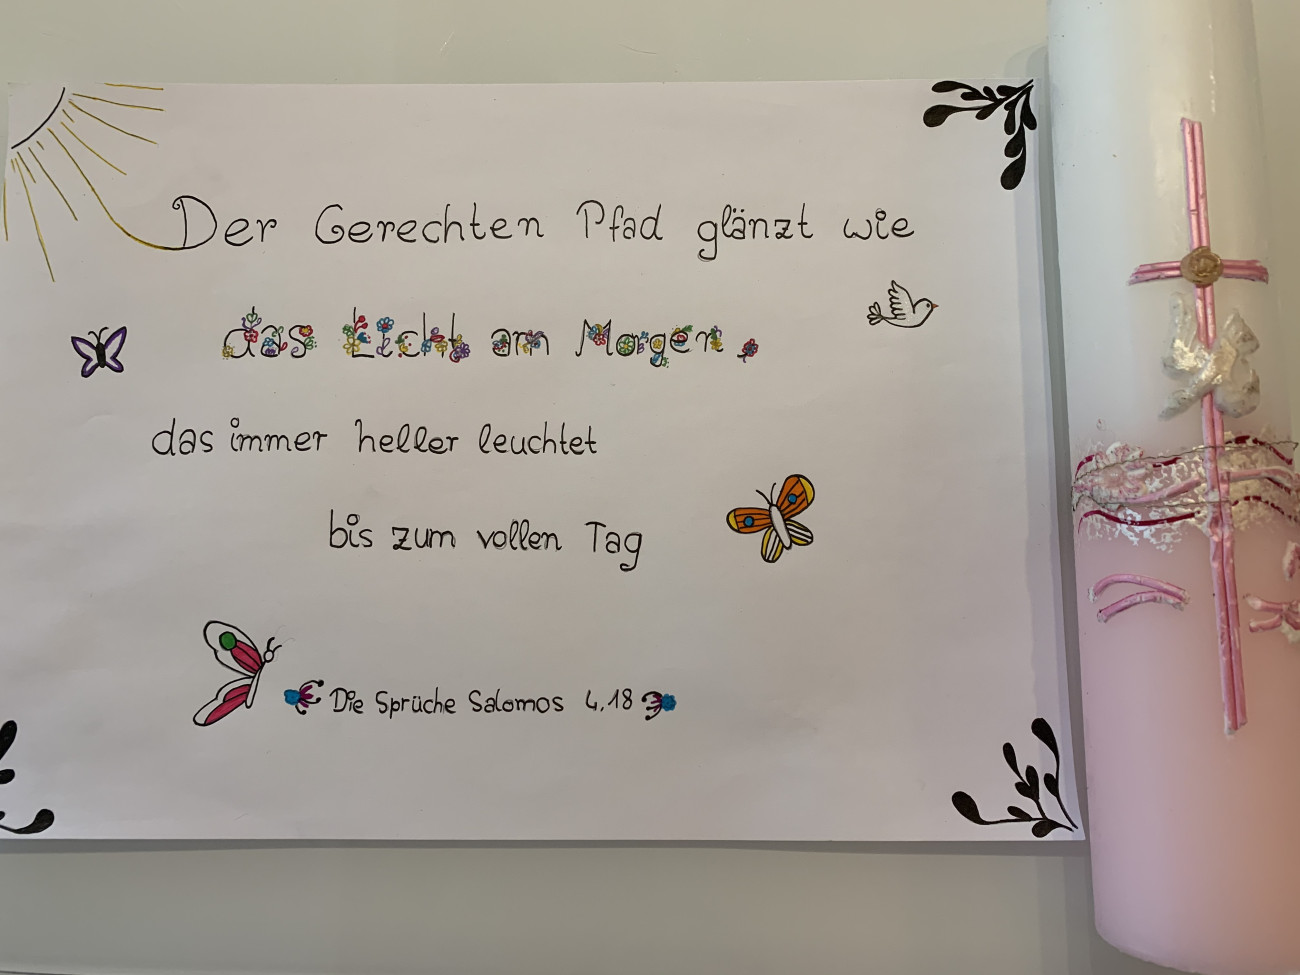 Der Gerechten Pfad glänzt wie
das Licht am Morgen,
das immer heller leuchtet
bis zum vollen Tag
Die Sprüche Salomos 4,18